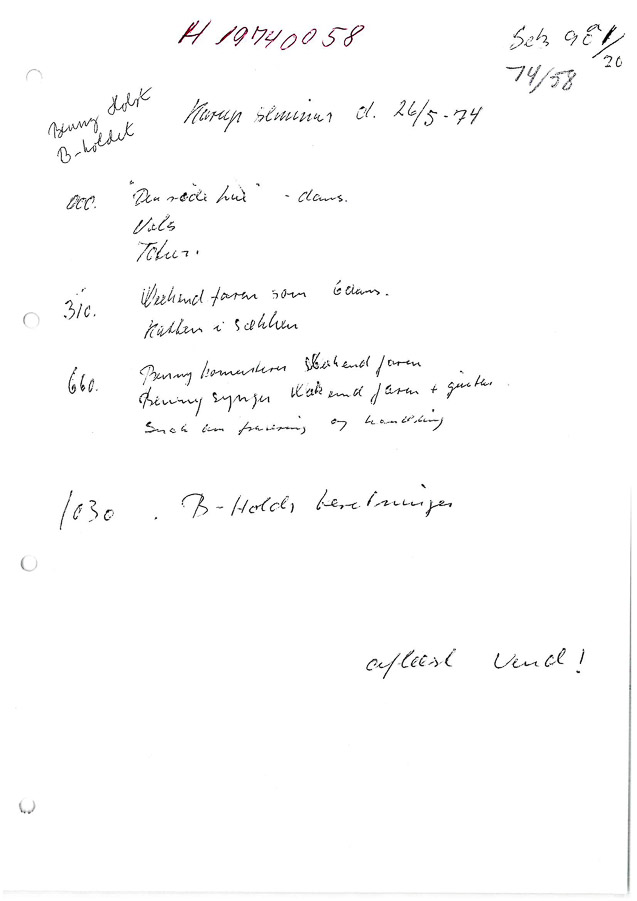 H 19740058
74/58
20
Benny Holst
B-holdet
Karup seminar d. 26/5-74
000. "Den røde hue" - dans.
Vals
Totur.
310. Weekend faren som 6dans.
Katten i sækken
660. Benny komenterer Weekend faren
Benny synger Weekend faren + guitar.
Snak om frasering og handling
1030. B-Holds beretninger
aflæst Vend!